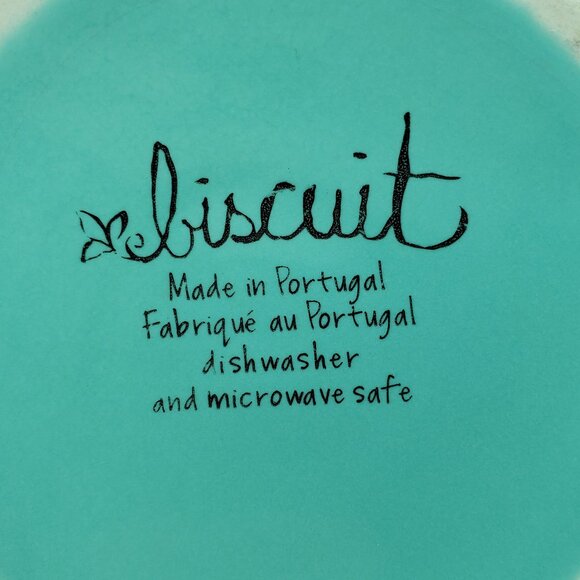 biscuit
Made in Portugal
Fabriqué au Portugal
dishwasher
and microwave safe